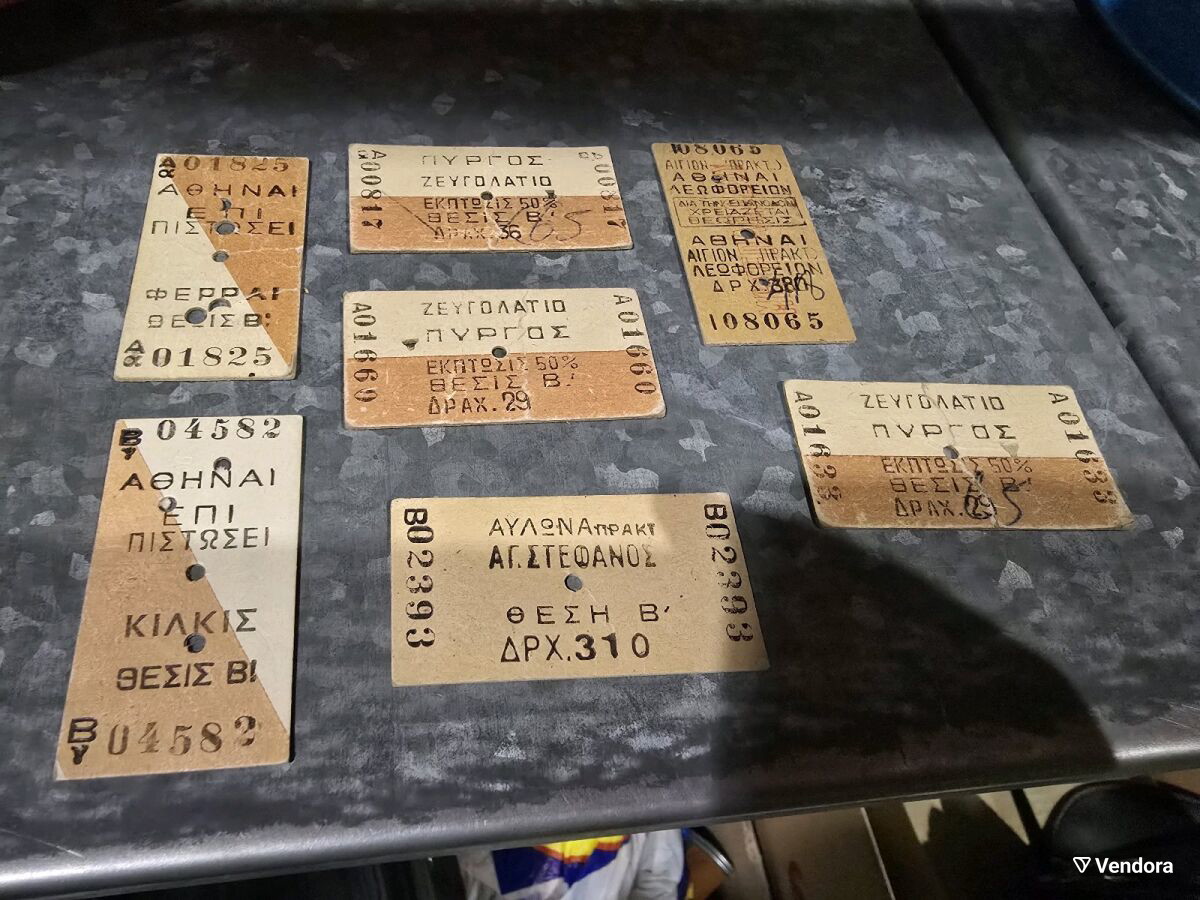 Aα 01825
ΑΘΗΝΑΙ
ΕΠΙ
ΠΙΣΤΩΣΕΙ
ΦΕΡΡΑΙ
ΘΕΣΙΣ Β!
Aα 01825
A00817
ΠΥΡΓΟΣ
ΖΕΥΓΟΛΑΤΙΟ
ΕΚΠΤΩΣΙΣ 50%
ΘΕΣΙΣ Β.'
ΔΡΑΧ. 36
A00817
108065
ΑΙΓΙΟΝ (ΠΡΑΚΤ.)
ΑΘΗΝΑΙ
ΛΕΩΦΟΡΕΙΟΝ
ΔΙΑ ΤΗΝ ΕΠΑΝΟΔΟΝ
ΧΡΕΙΑΖΕΤΑΙ
ΘΕΩΡΗΣΙΣ
ΑΘΗΝΑΙ
ΑΙΓΙΟΝ (ΠΡΑΚΤ.)
ΛΕΩΦΟΡΕΙΟΝ
ΔΡΧ.
108065
A01660
ΖΕΥΓΟΛΑΤΙΟ
ΠΥΡΓΟΣ
ΕΚΠΤΩΣΙΣ 50%
ΘΕΣΙΣ Β.'
ΔΡΑΧ. 29
A01660
A01635
ΖΕΥΓΟΛΑΤΙΟ
ΠΥΡΓΟΣ
ΕΚΠΤΩΣΙΣ 50%
ΘΕΣΙΣ Β.'
ΔΡΑΧ. 29
A01635
Βγ 04582
ΑΘΗΝΑΙ
ΕΠΙ
ΠΙΣΤΩΣΕΙ
ΚΙΛΚΙΣ
ΘΕΣΙΣ Β!
Βγ 04582
B02393
ΑΥΛΩΝΑ ΠΡΑΚΤ
ΑΓ. ΣΤΕΦΑΝΟΣ
ΘΕΣΗ Β'
ΔΡΧ. 310
B02393
Vendora